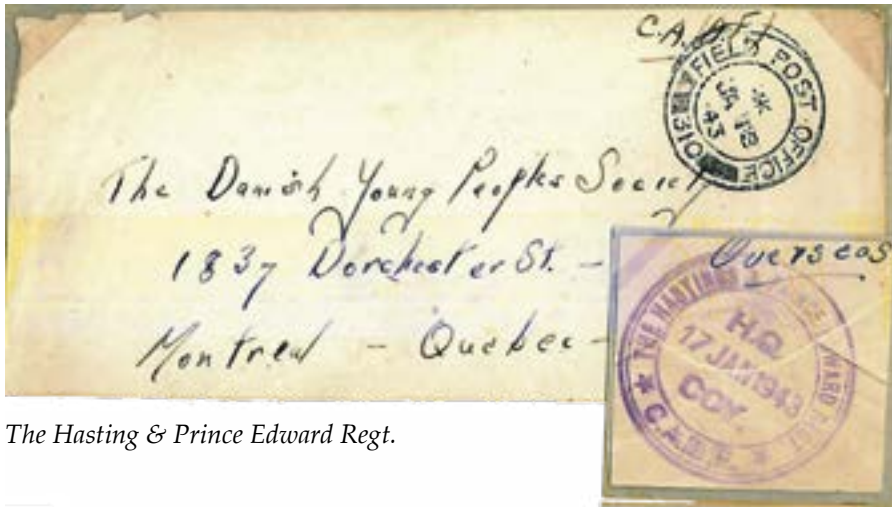 C.A.
FIELD POST OFFICE
JA 18
43
The Danish Young Peoples Societ
1837 Dorchester St. -
Montreal - Quebec -
Overseas
THE HASTINGS & PRINCE EDWARD REGT
H.Q.
17 JAN 1943
COY.
★ C.A.S.F. ★
The Hasting & Prince Edward Regt.